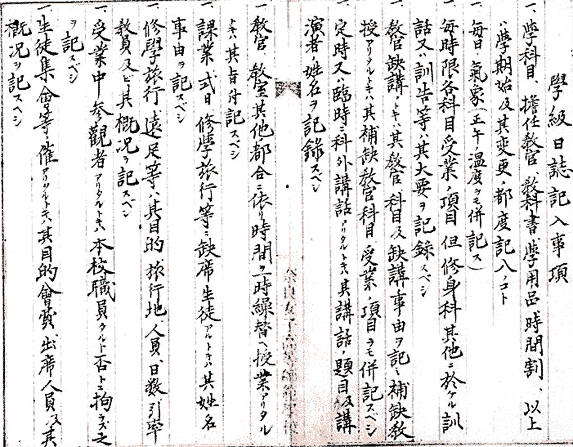 学級日誌記入事項
一、学科目、擔任教官、教科書、学用品、時間割、以上
ハ学期始及其変更ノ都度記入ノコト
一、毎日ノ氣象(正午ノ温度ヲモ併記ス)
一、毎時限各科目受業ノ項目但修身科其他ニ於ケル訓
話又ハ訓告等ハ其大要ヲ記録スベシ
一、教官缺講ノトキハ其教官科目及缺講事由ヲ記シ補缺教
授アリタルトキハ其補缺教官科目受業ノ項目ヲモ併記スベシ
一、定時又ハ臨時ニ科外講話アリタルトキハ其講話ノ題目及講
演者ノ姓名ヲ記録スベシ
一、教官、教室其他都合ニ依リ時間ヲ一時繰替ヘ授業アリタル
トキハ其旨付記スベシ
一、課業、式日、修学旅行等ニ缺席ノ生徒アルトキハ其姓名
事由ヲ記スベシ
一、修学旅行、遠足等ハ其目的、旅行地、人員、日数、引率
教員及ビ其概況ヲ記スベシ
一、受業中参観者アリタルトキハ本校職員タルト否トニ拘ラズ之
ヲ記スベシ
一、生徒集会等ヲ催シアリタルトキハ其目的、會費、出席人員及其
概況ヲ記スベシ
奈良女子高等師範学校